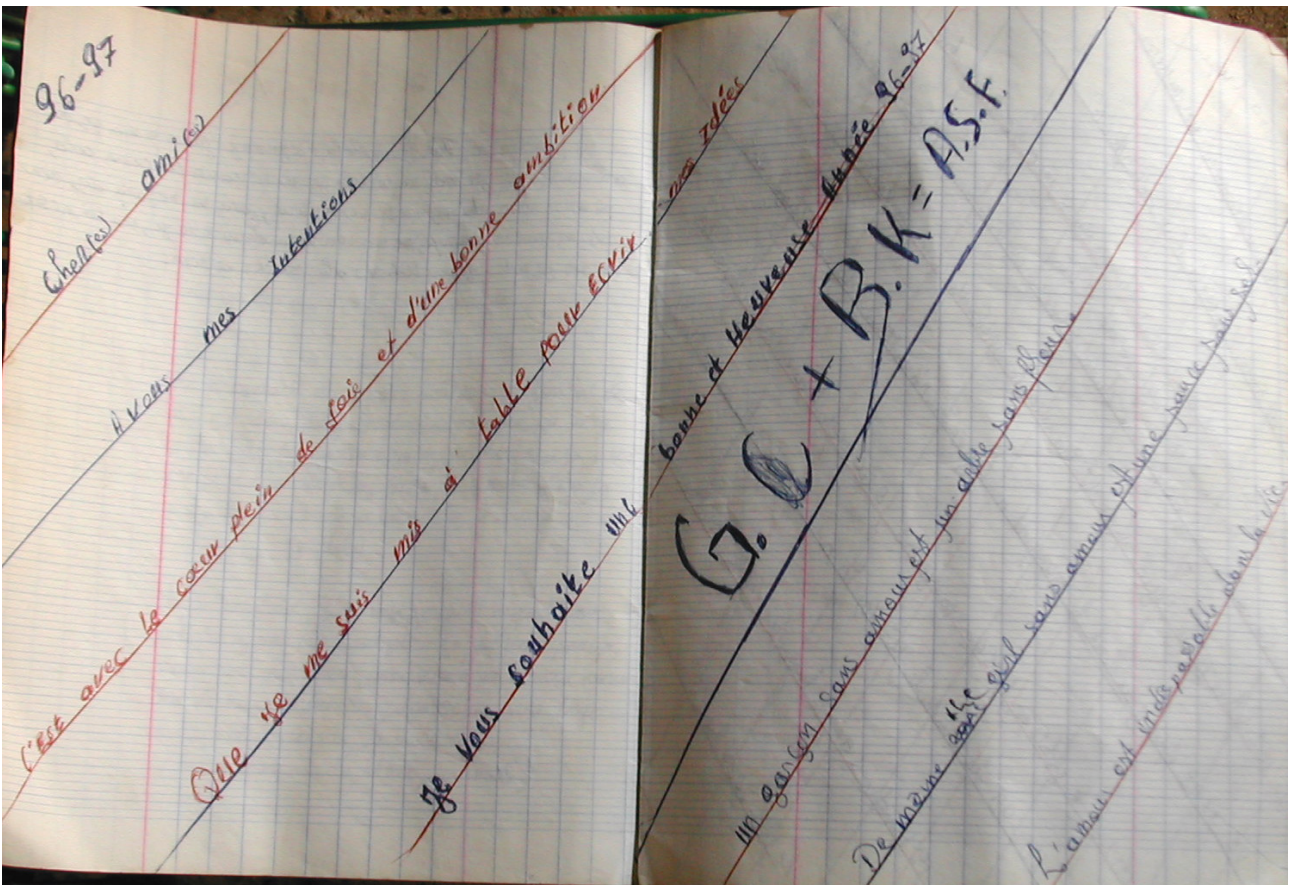 96-97
Cher(es) ami(es)
A vous mes Intentions
C'Est avec le cœur plein de joie et d'une bonne ambition
Que je me suis mis à table pour ECrir mes Idées
Je Vous souhaite une bonne et Heureuse Année 96-97
G. C + B.K = A.S.F.
Un garçon sans amour est un arbre sans fleur.
De même une girl sans amour est une sauce sans sel.
L'amour est indispensable dans la vie.